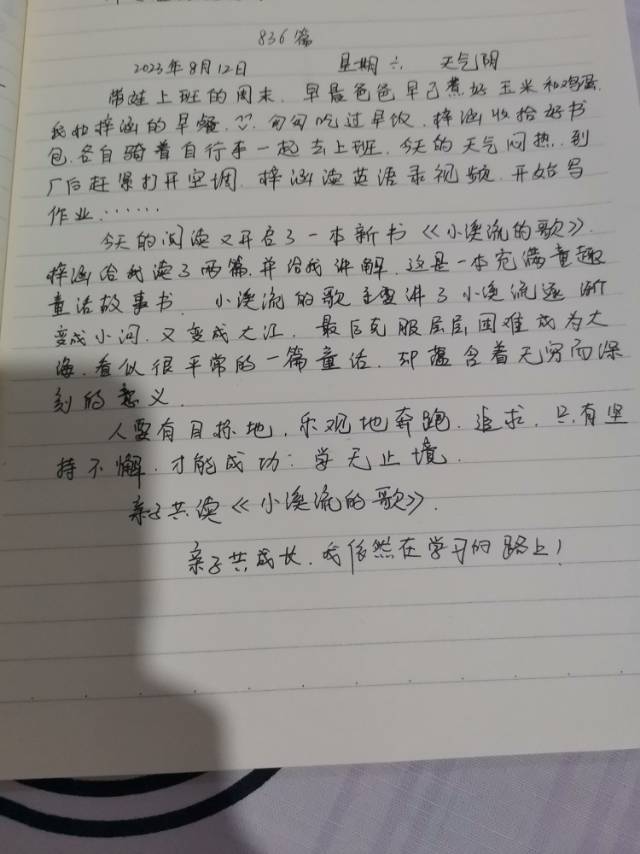 836篇
2023年8月12日 星期六 天气阴
带娃上班的周末，早晨爸爸早已煮好玉米和鸡蛋，
我和梓涵的早餐，匆匆吃过早饭，梓涵收拾好书
包，各自骑着自行车一起去上班，今天的天气闷热，到
厂后赶紧打开空调，梓涵读英语录视频，开始写
作业……
今天的阅读又开启了一本新书《小溪流的歌》，
梓涵给我读了两篇，并给我讲解，这是一本充满童趣
童话故事书，小溪流的歌主要讲了小溪流逐渐
变成小河，又变成大江，最后克服层层困难成为大
海，看似很平常的一篇童话，却蕴含着无穷而深
刻的意义，
人要有目标地，乐观地奔跑，追求，只有坚
持不懈，才能成功：学无止境，
亲子共读《小溪流的歌》，
亲子共成长，我依然在学习的路上！